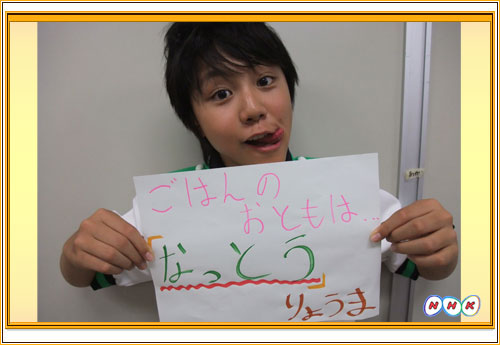 ごはんの
おともは...
「なっとう」
りょうま
NHK